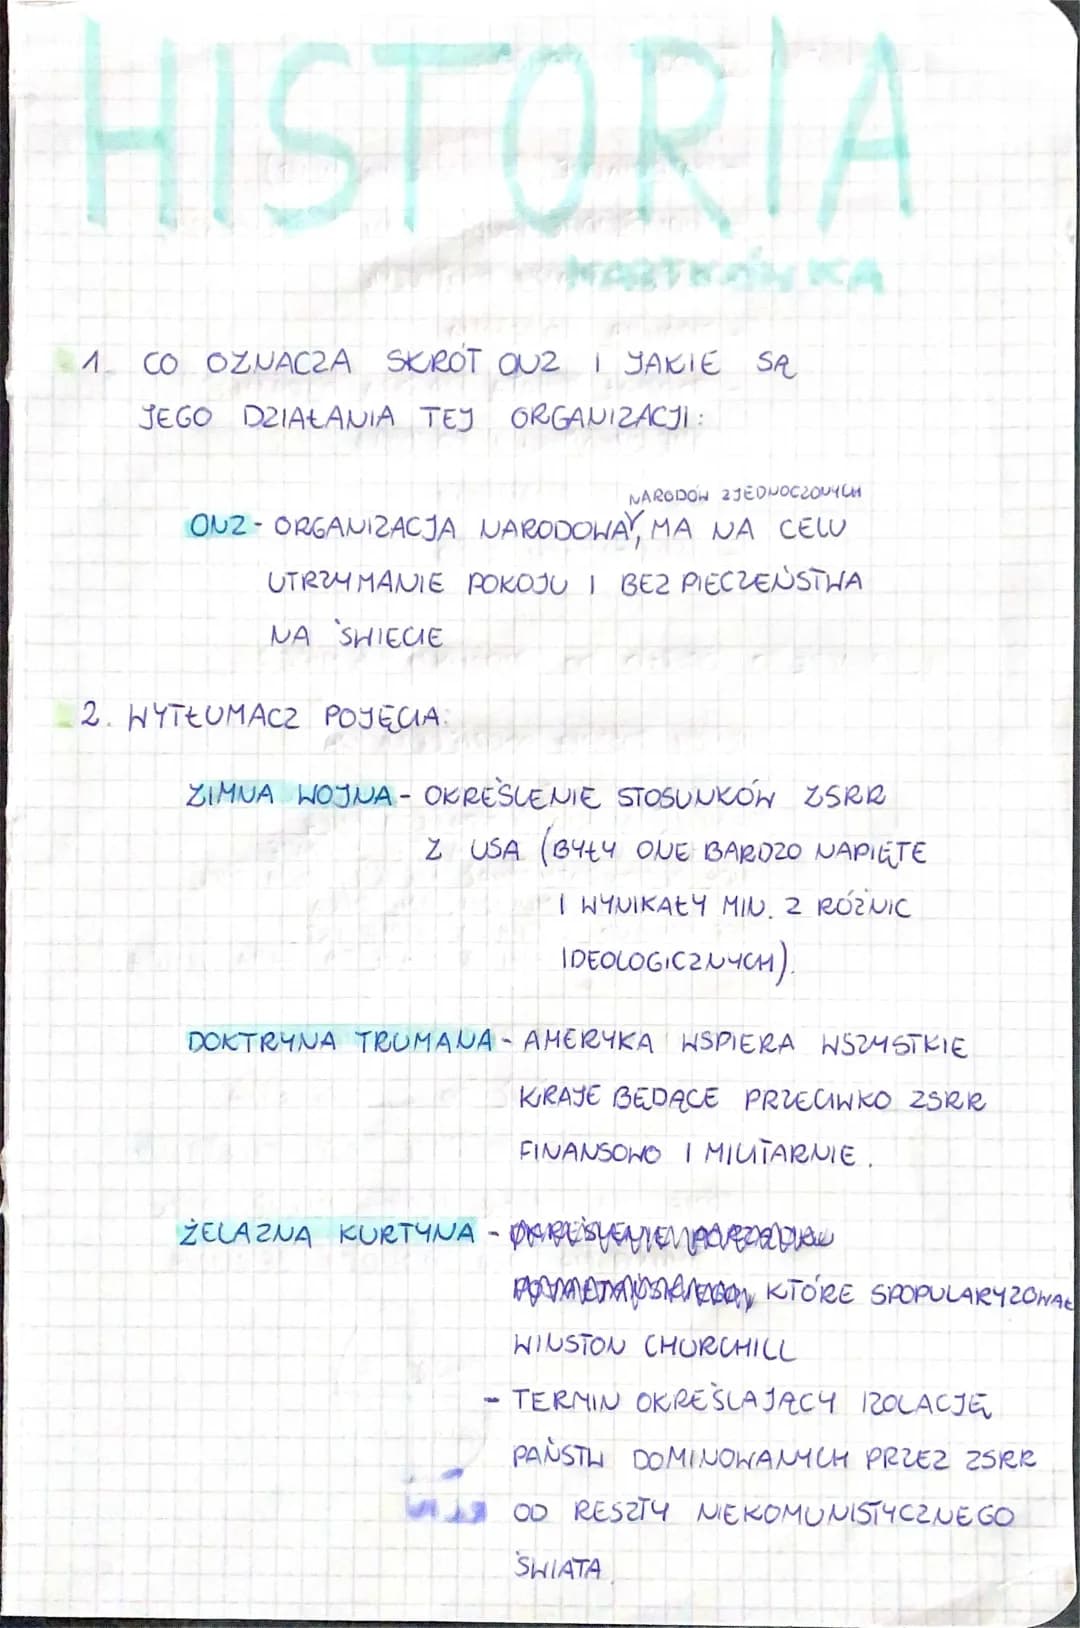 HISTORIA
KARTKÓWKA
1. CO OZNACZA SKRÓT ONZ I JAKIE SĄ
JEGO DZIAŁANIA TEJ ORGANIZACJI:
NARODÓW ZJEDNOCZONYCH
ONZ - ORGANIZACJA NARODOWA, MA NA CELU
UTRZYMANIE POKOJU I BEZPIECZEŃSTWA
NA ŚWIECIE
2. WYTŁUMACZ POJĘCIA:
ZIMNA WOJNA - OKREŚLENIE STOSUNKÓW ZSRR
Z USA (BYŁY ONE BARDZO NAPIĘTE
I WYNIKAŁY MIN. Z RÓŻNIC
IDEOLOGICZNYCH).
DOKTRYNA TRUMANA - AMERYKA WSPIERA WSZYSTKIE
KRAJE BĘDĄCE PRZECIWKO ZSRR
FINANSOWO I MILITARNIE.
ŻELAZNA KURTYNA -
KTÓRE SPOPULARYZOWAŁ
WINSTON CHURCHILL
- TERMIN OKREŚLAJĄCY IZOLACJĘ
PAŃSTW DOMINOWANYCH PRZEZ ZSRR
OD RESZTY NIEKOMUNISTYCZNEGO
ŚWIATA.